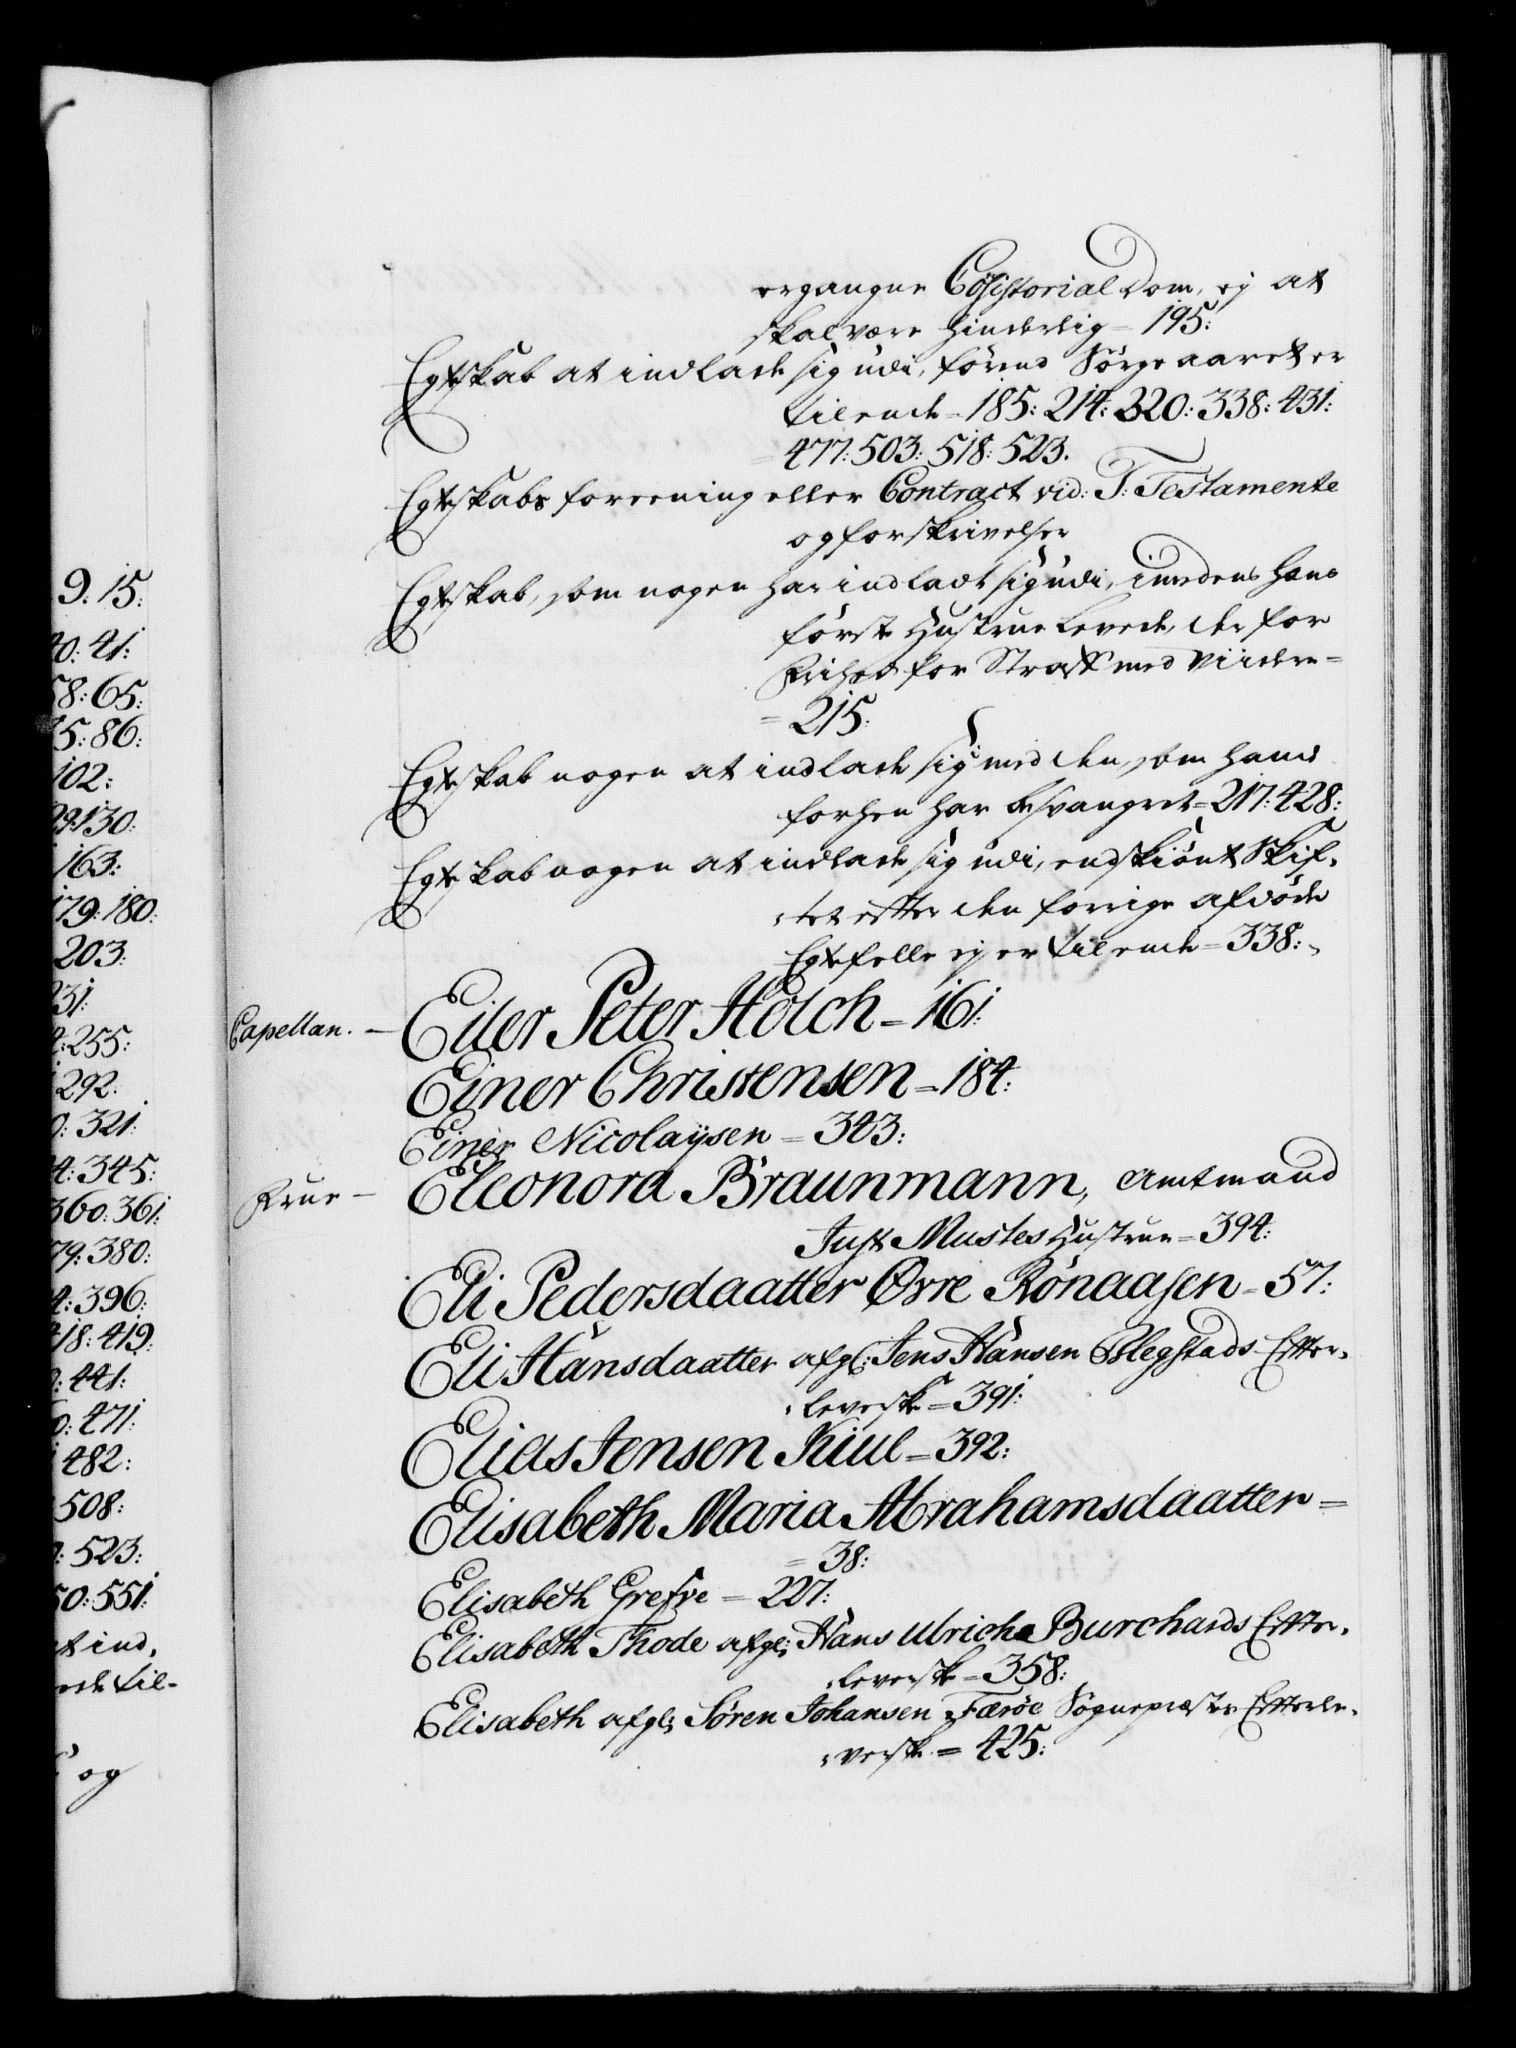 ergangne Co͞sistorial Dom, ej at
skal være hinderlig = 195:
Egteskab at indlade sig udi, førend Sørge aaret er
til ende = 185: 214: 320: 338: 431:
477: 503: 518: 523.
Egteskabs foreening eller Contract vid: T: Testamente
og forskrivelser
Egteskab, som nogen har indladt sig udi, imedens hans
første Hustrue levede, der for
Frihed for Straf med Viidere =
= 215:
Egteskab nogen at indlade sig med den, som hand
forhen har besvangret = 217: 428:
Egteskab nogen at indlade sig udi, endskiønt Skif-
tet efter den forrige afdøde
Egtefelle ej er til ende = 338:
Capellan. — Eiler Peter Holch = 161:
Einer Christensen = 184:
Einer Nicolaysen = 343:
Frue — Eleonora Braunmann, Amtmand
Just Mustes Hustrue = 394:
Eli Pedersdaatter Øvre Rönaasen = 57:
Eli Hansdaatter afgl: Jens Hansen Blegstads Efter-
leverske = 391:
Elias Jensen Kiul = 392:
Elisabeth Maria Abrahamsdaatter =
= 38:
Elisabeth Grefve = 227:
Elisabeth Thode afgl: Hans Ulrich Burchards Efter-
leverske = 358:
Elisabeth afgl: Søren Johansen Færöe Sognepræstes Efterle-
verske = 425:
9. 15:
40: 41:
58: 65:
75: 86:
102:
129: 130:
163:
179: 180:
203:
231:
: 255:
292:
: 321:
4: 345:
360: 361:
379: 380:
4: 396:
418: 419:
: 441:
: 471:
482:
508:
: 523:
550: 551:
et ind,
til-
og